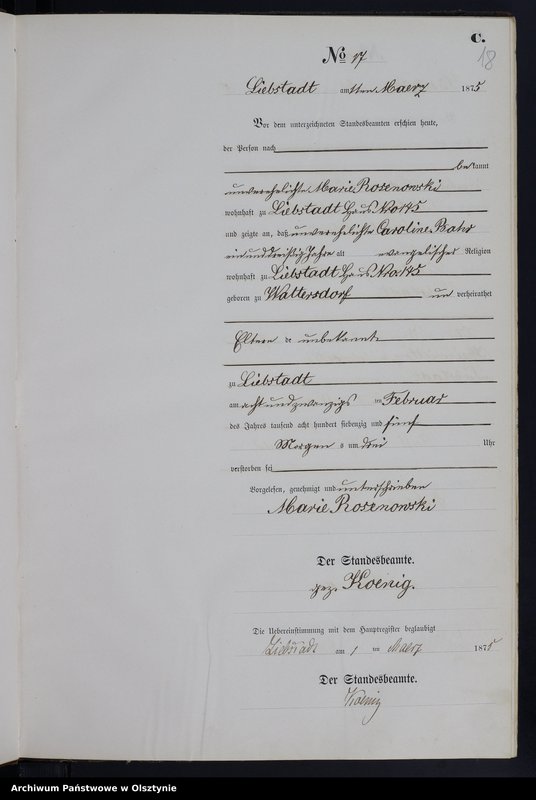 C.
18
No 17
Liebstadt am 1ten Maerz 1875
Vor dem unterzeichneten Standesbeamten erschien heute,
der Person nach
bekannt
unverehelichte Marie Rosenowski
wohnhaft zu Liebstadt Haus No 145
und zeigte an, daß unverehelichte Caroline Bahr
einunddreißig Jahre alt evangelischer Religion
wohnhaft zu Liebstadt Haus No 145
geboren zu Waltersdorf un verheirathet
Eltern unbekannt
zu Liebstadt
am achtundzwanzigs ten Februar
des Jahres tausend acht hundert siebenzig und fünf
Morgens um drei Uhr
verstorben sei
Vorgelesen, genehmigt und unterschrieben
Marie Rosenowski
Der Standesbeamte.
gez. Koenig.
Die Uebereinstimmung mit dem Hauptregister beglaubigt
Liebstadt am 1 ten Maerz 1875
Der Standesbeamte.
Koenig
Archiwum Państwowe w Olsztynie